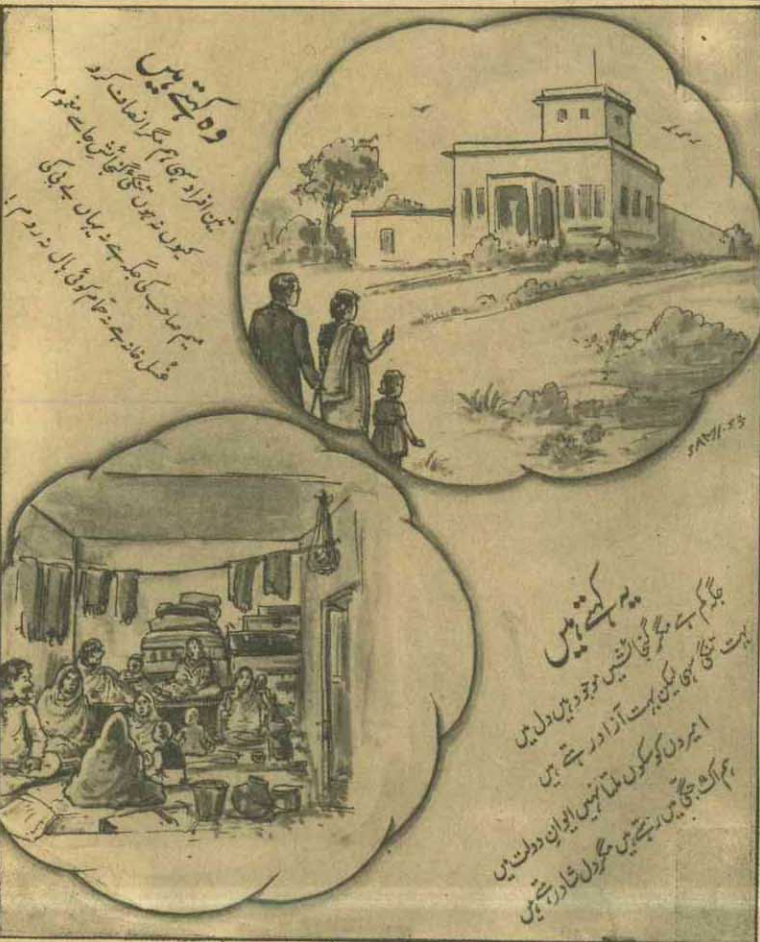 وہ کہتے ہیں
تین افراد سہی ہم مگر انصاف کرو
کیوں نہ ہوں تنگیٔ گنجائش جا سے مغموم
میم صاحب کی جگہ ہے نہ یہاں بے بی کی
غسل خانہ ہے نہ حمام کوئی ہال نہ روم!
SAMI-53
یہ کہتے ہیں
جگہ کم ہے مگر گنجائشیں موجود ہیں دل میں
بہت تنگی سہی لیکن بہت آزاد رہتے ہیں
امیروں کو سکوں ملتا نہیں ایوانِ دولت میں
ہم اک جھگی میں رہتے ہیں مگر دل شاد رہتے ہیں